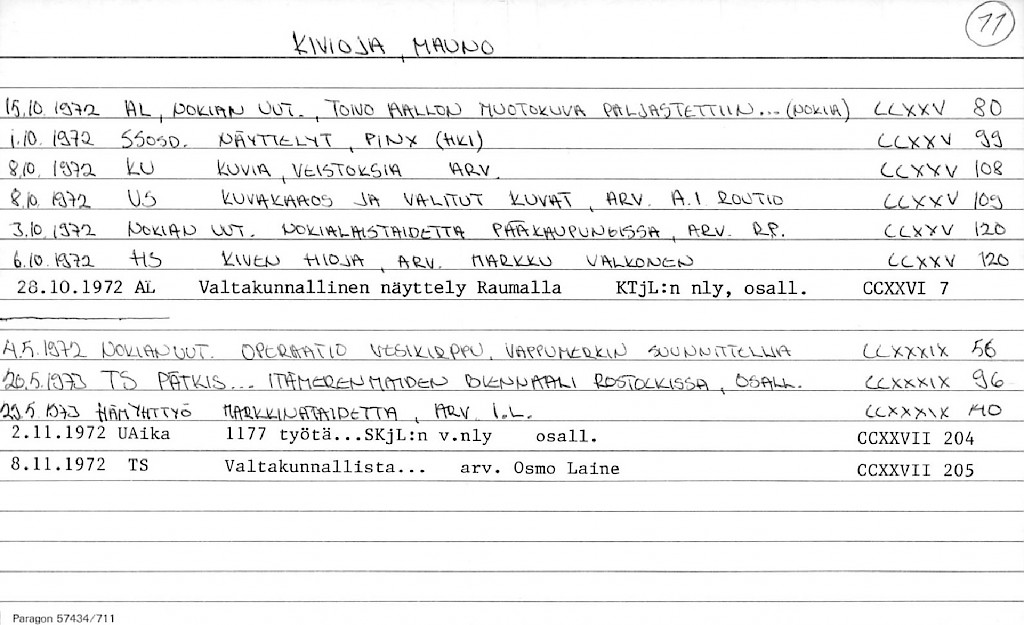 11
KIVIOJA, MAUNO
15.10.1972 AL, NOKIAN UUT., TOIVO AALLON MUOTOKUVA PALJASTETTIIN... (NOKIA) CCXXV 80
1.10.1972 SSOSD. NÄYTTELYT, PINX (HKI) CCXXV 99
8.10.1972 KU KUVIA, VEISTOKSIA ARV. CCXXV 108
8.10.1972 US KUVAKAAOS JA VALITUT KUVAT, ARV. A.I. ROUTIO CCXXV 109
3.10.1972 NOKIAN UUT. NOKIALAISTAIDETTA PÄÄKAUPUNGISSA, ARV. R.P. CCXXV 120
6.10.1972 HS KIVEN HIOJA, ARV. MARKKU VALKONEN CCXXV 120
28.10.1972 AL Valtakunnallinen näyttely Raumalla KTjL:n nly, osall. CCXXVI 7
4.5.1972 NOKIAN UUT. OPERAATIO VESIKIRPPU, VAPPUMERKIN SUUNNITTELIJA CCXXXIX 56
20.5.1973 TS PÄTKIS... ITÄMEREN MAIDEN BIENNAALI ROSTOCKISSA, OSALL. CCXXXIX 96
29.5.1973 HÄMYHTTYÖ MARKKINATAIDETTA, ARV. I.L. CCXXXIX 140
2.11.1972 UAika 1177 työtä...SKjL:n v.nly osall. CCXXVII 204
8.11.1972 TS Valtakunnallista... arv. Osmo Laine CCXXVII 205
Paragon 57434/711